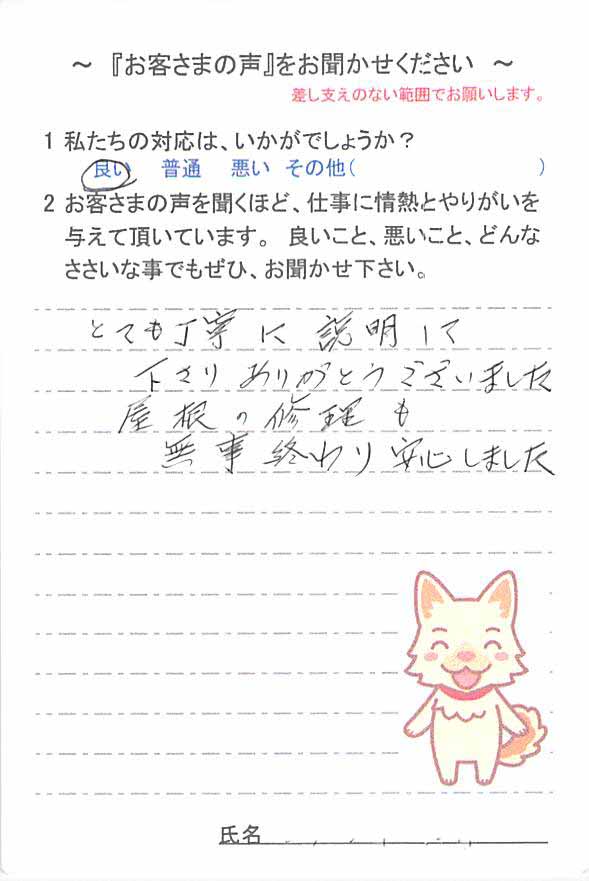 ～ 『お客さまの声』をお聞かせください ～
差し支えのない範囲でお願いします。
1 私たちの対応は、いかがでしょうか？
良い 普通 悪い その他( )
2 お客さまの声を聞くほど、仕事に情熱とやりがいを
与えて頂いています。 良いこと、悪いこと、どんな
ささいな事でもぜひ、お聞かせ下さい。
とても丁寧に説明して
下さりありがとうございました
屋根の修理も
無事終わり安心しました
氏名